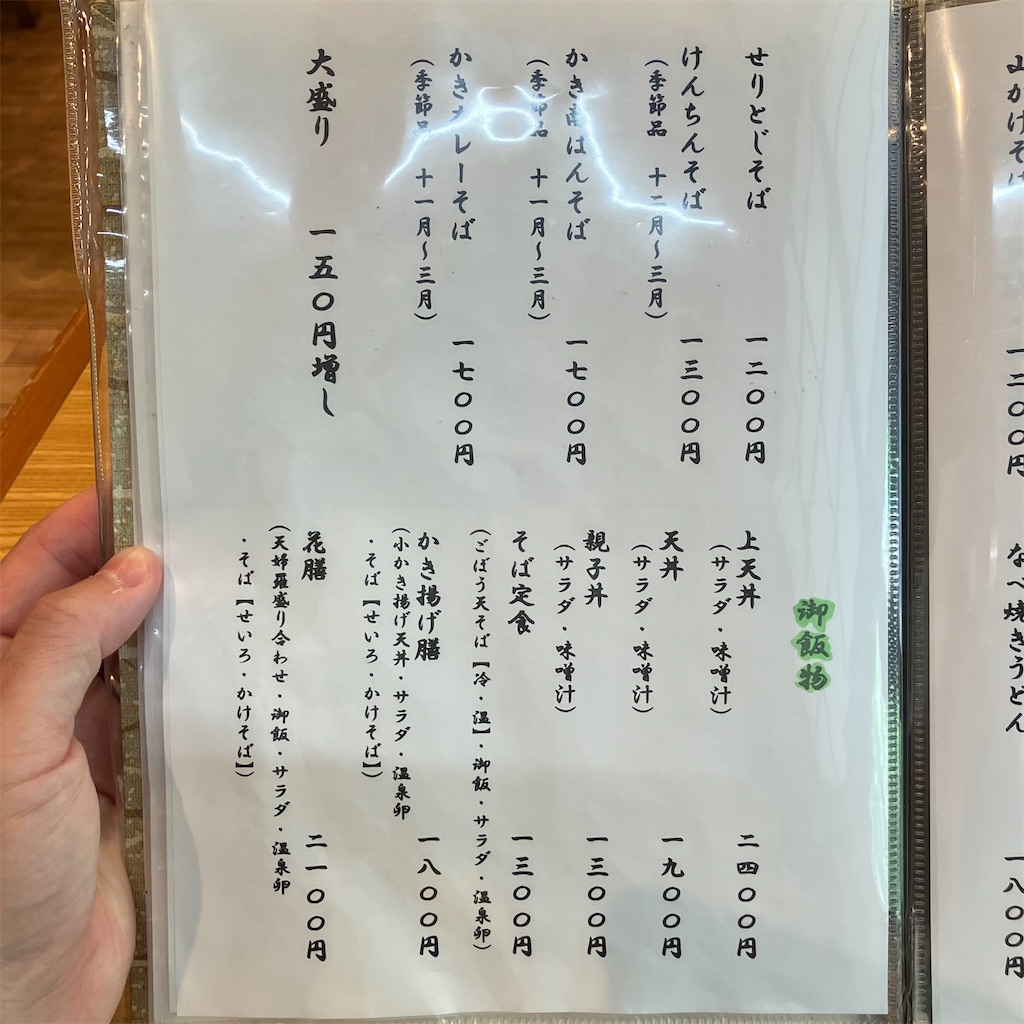 山かけそば 一二〇〇円
なべ焼きうどん 一八〇〇円
せりとじそば 一二〇〇円
けんちんそば 一三〇〇円
（季節品 十二月～三月）
かき南ばんそば 一七〇〇円
（季節品 十一月～三月）
かきカレーそば 一七〇〇円
（季節品 十一月～三月）
大盛り 一五〇円増し
御飯物
上天丼 二四〇〇円
（サラダ・味噌汁）
天丼 一九〇〇円
（サラダ・味噌汁）
親子丼 一三〇〇円
（サラダ・味噌汁）
そば定食 一三〇〇円
（ごぼう天そば【冷・温】・御飯・サラダ・温泉卵）
かき揚げ膳 一八〇〇円
（小かき揚げ天丼・サラダ・温泉卵
・そば【せいろ・かけそば】）
花膳 二一〇〇円
（天婦羅盛り合わせ・御飯・サラダ・温泉卵
・そば【せいろ・かけそば】）